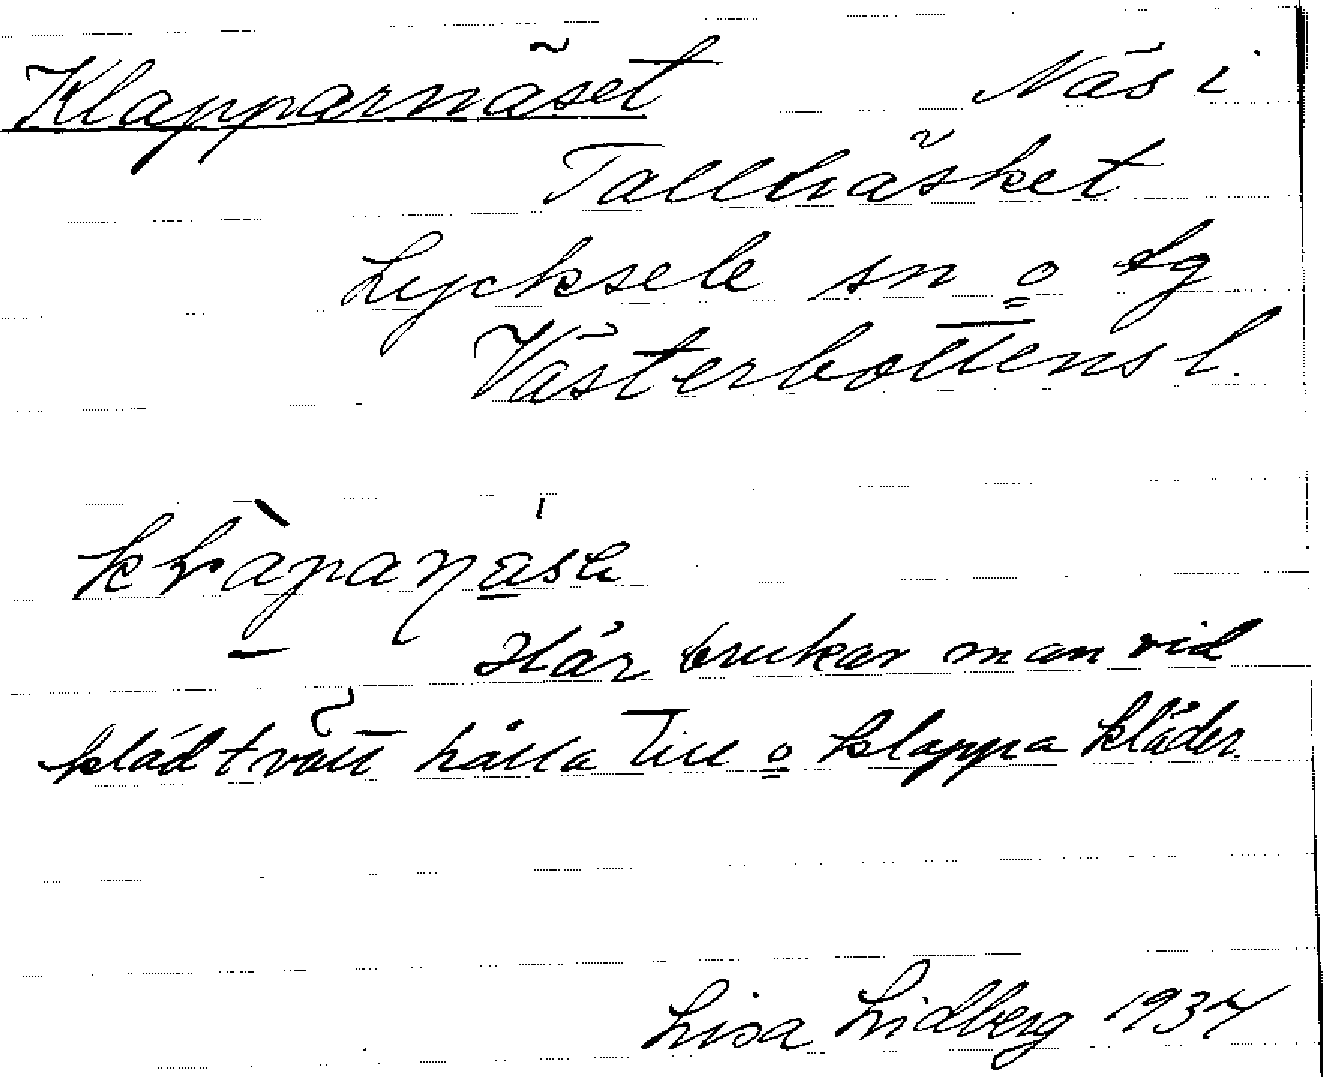 Klapparnäset Näs i
Tallträsket
Lycksele sn o lg
Västerbottens l.
Här brukar man vid
klädtvätt hålla till o klappa kläder
Lisa Lidberg 1937